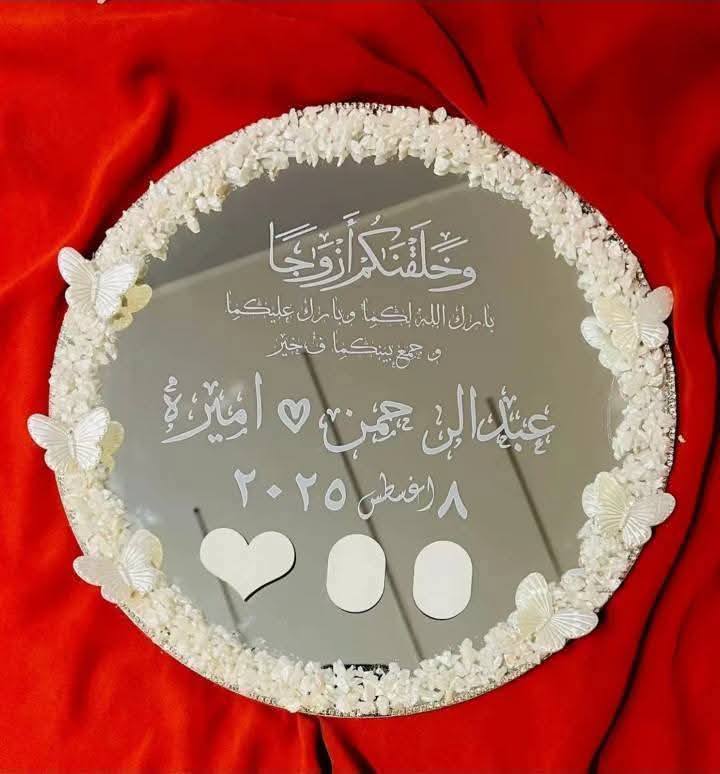 وَخَلَقْنَاكُمْ أَزْوَاجًا
بارك الله لكما وبارك عليكما
و جمع بينكما في خير
عبدالرحمن ♥ اميره
٨ اغسطس ٢٠٢٥